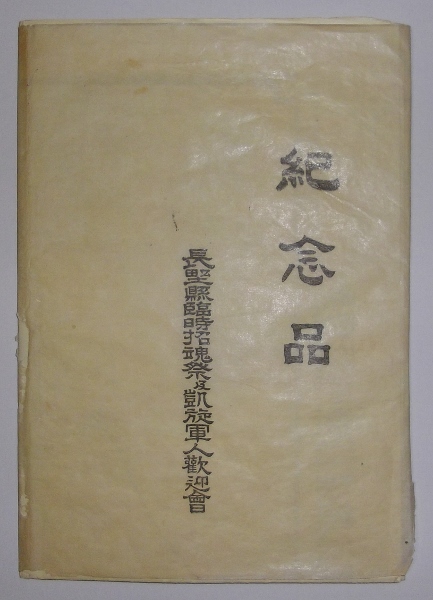 紀念品
長野縣臨時招魂祭及凱旋軍人歡迎會